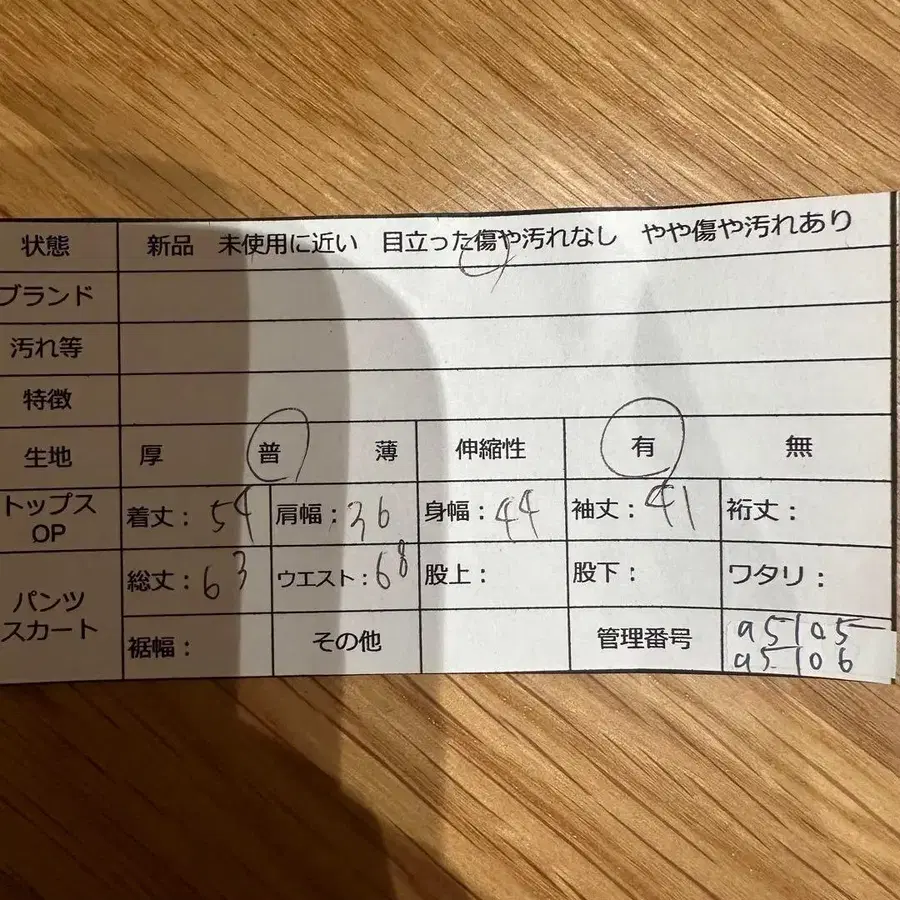 状態 新品 未使用に近い 目立った傷や汚れなし やや傷や汚れあり
ブランド
汚れ等
特徴
生地 厚 普 薄 伸縮性 有 無
トップス OP 着丈：54 肩幅：36 身幅：44 袖丈：41 裄丈：
パンツ スカート 総丈：63 ウエスト：68 股上： 股下： ワタリ：
裾幅： その他 管理番号 a5105
a5106